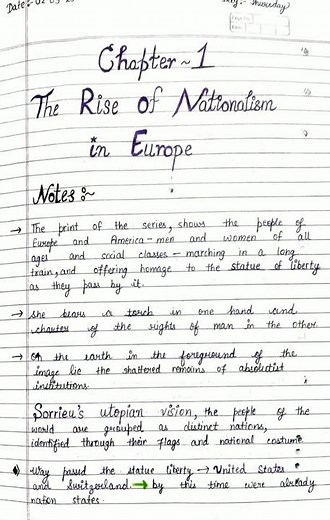 Date:-
Day:- Thursday
Chapter ~ 1
The Rise of Nationalism
in Europe
Notes :~
→ The print of the series, shows the people of
Europe and America - men and women of all
ages and social classes - marching in a long
train, and offering homage to the statue of liberty
as they pass by it.
→ she bears a torch in one hand and
charter of the rights of man in the other.
→ On the earth in the foreground of the
image lie the shattered remains of absolutist
institutions.
Sorrieu's utopian vision, the people of the
world are grouped as distinct nations,
identified through their flags and national costume
way passed the statue liberty → United States
and Switzerland → by this time were already
nation states.